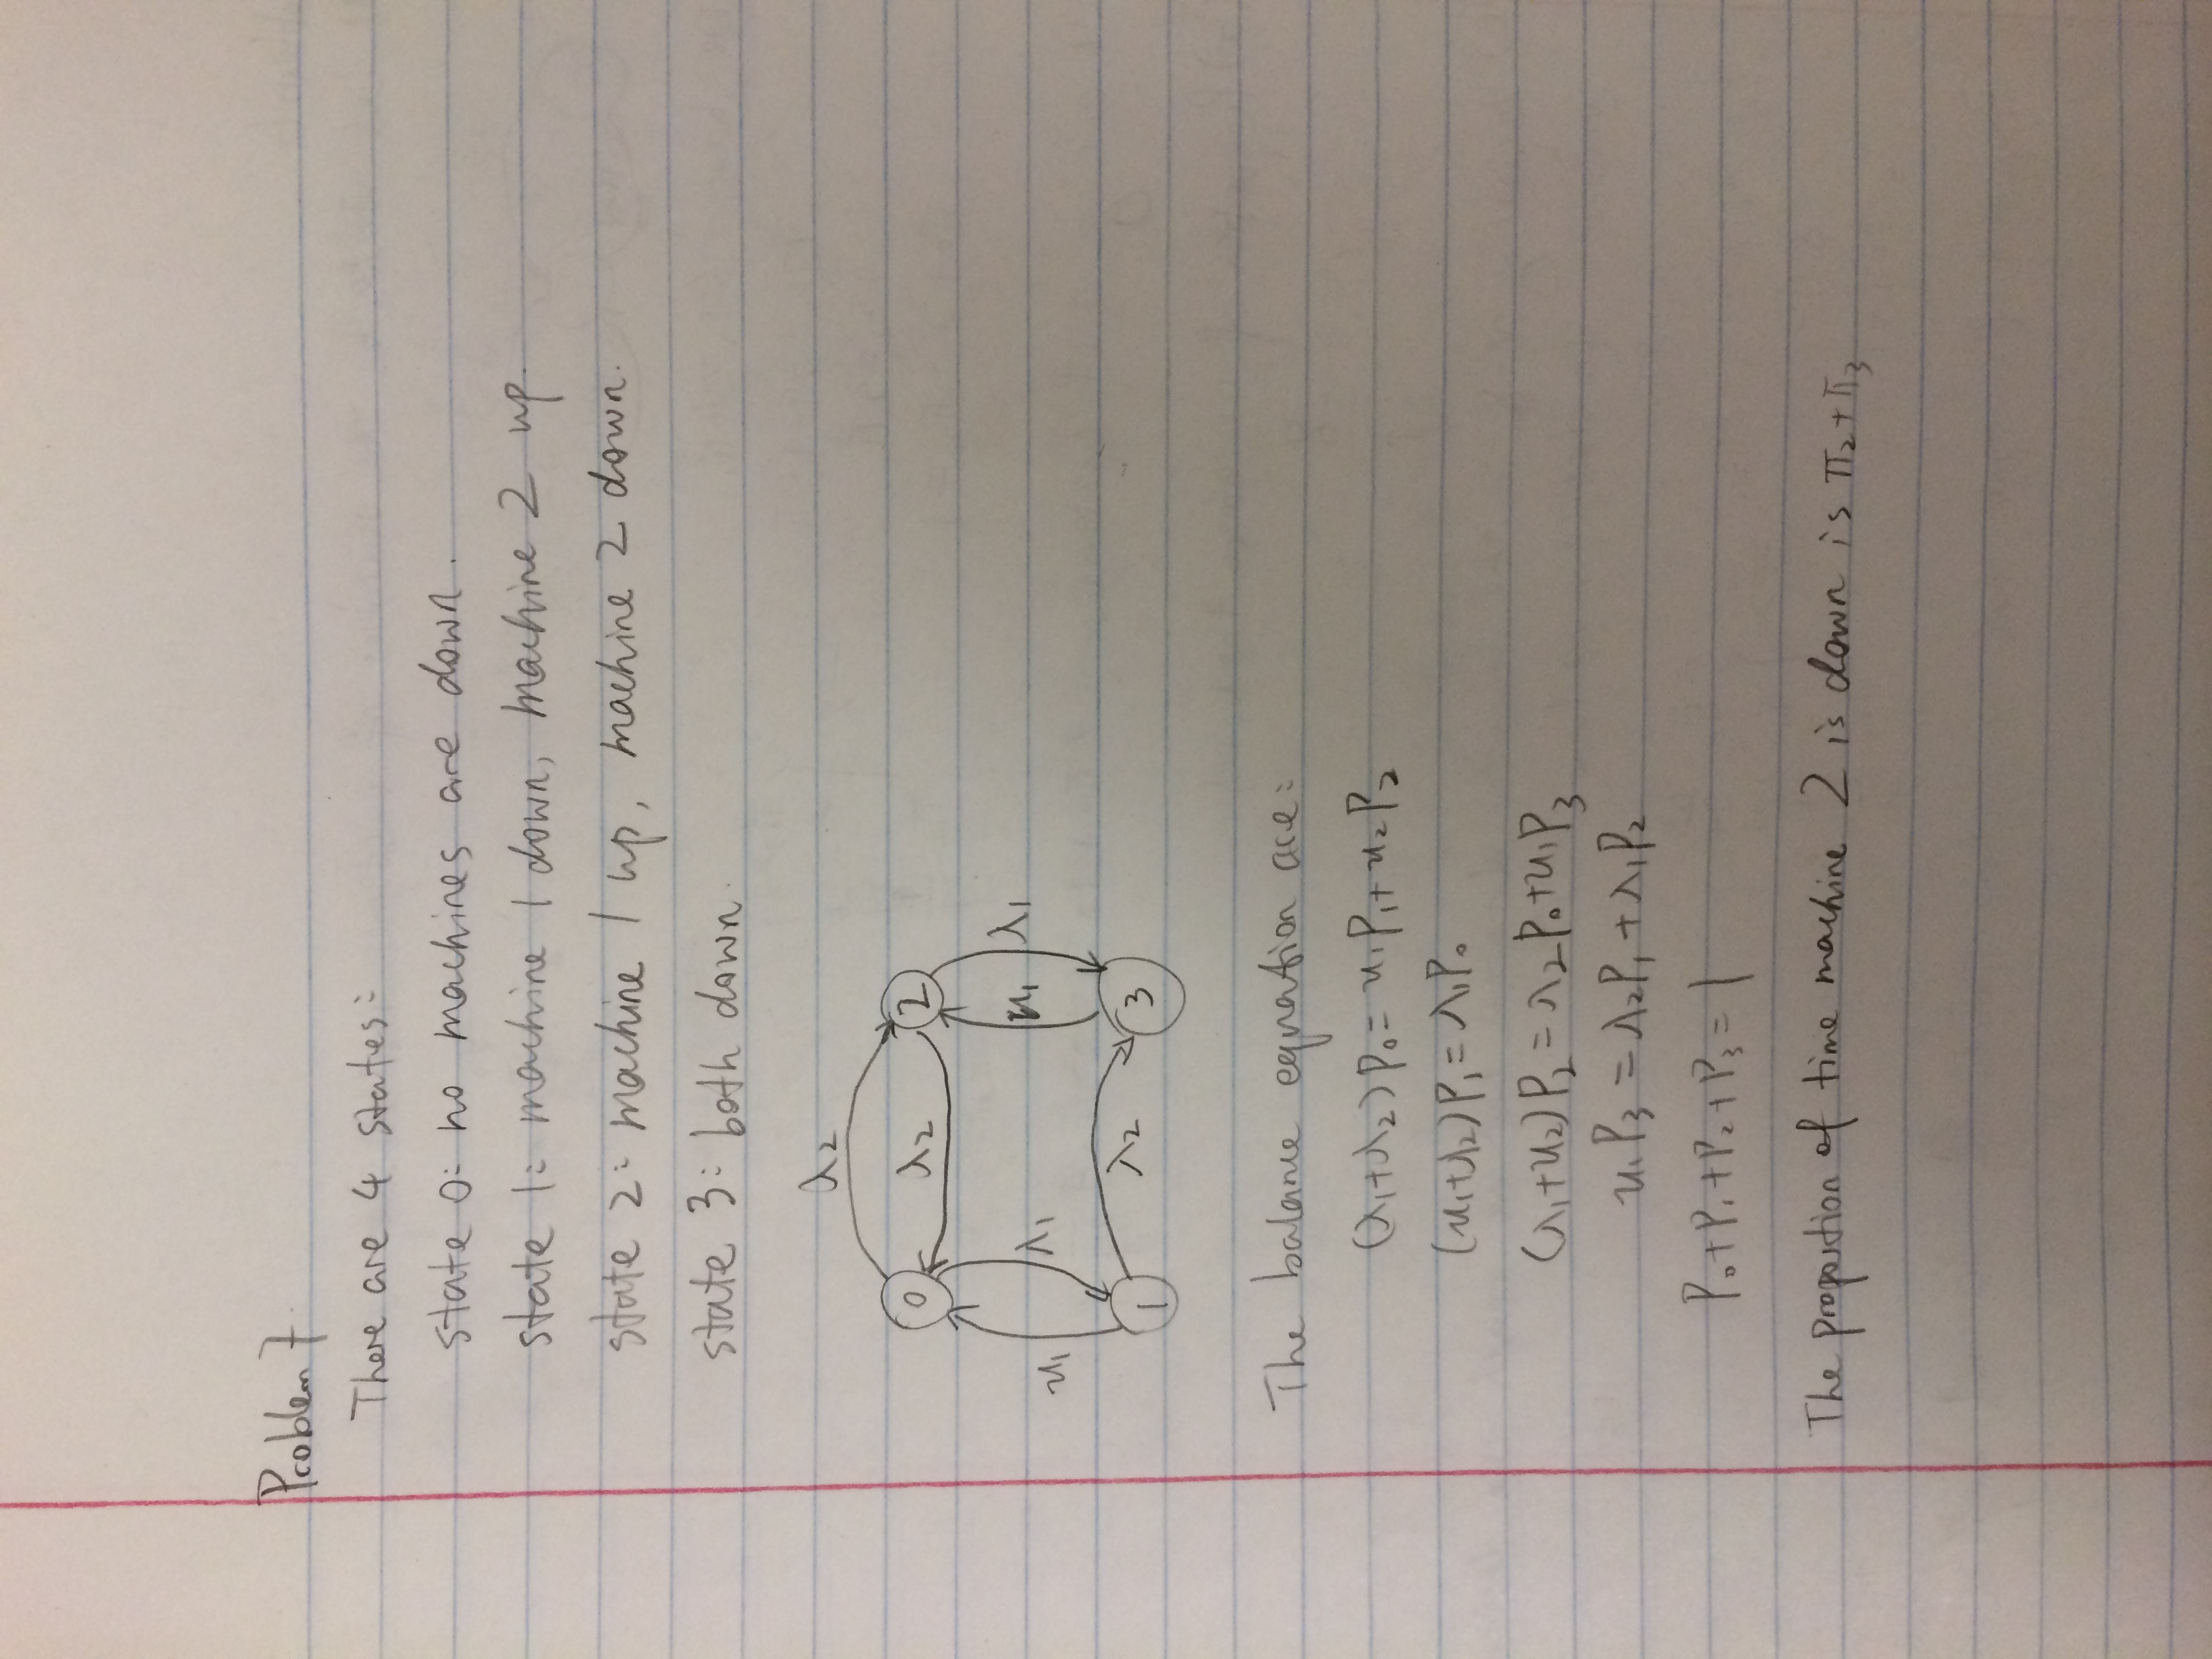 Problem 7
There are 4 states:
state 0: no machines are down.
state 1: machine 1 down, machine 2 up.
state 2: machine 1 up, machine 2 down.
state 3: both down.
λ2
0 λ2 2
u1 λ1 u1 λ1
1 λ2 3
The balance equation are:
(λ1+λ2)P0=u1P1+u2P2
(u1+λ2)P1=λ1P0
(λ1+u2)P2=λ2P0+u1P3
u1P3=λ2P1+λ1P2
P0+P1+P2+P3=1
The proportion of time machine 2 is down is π2+π3